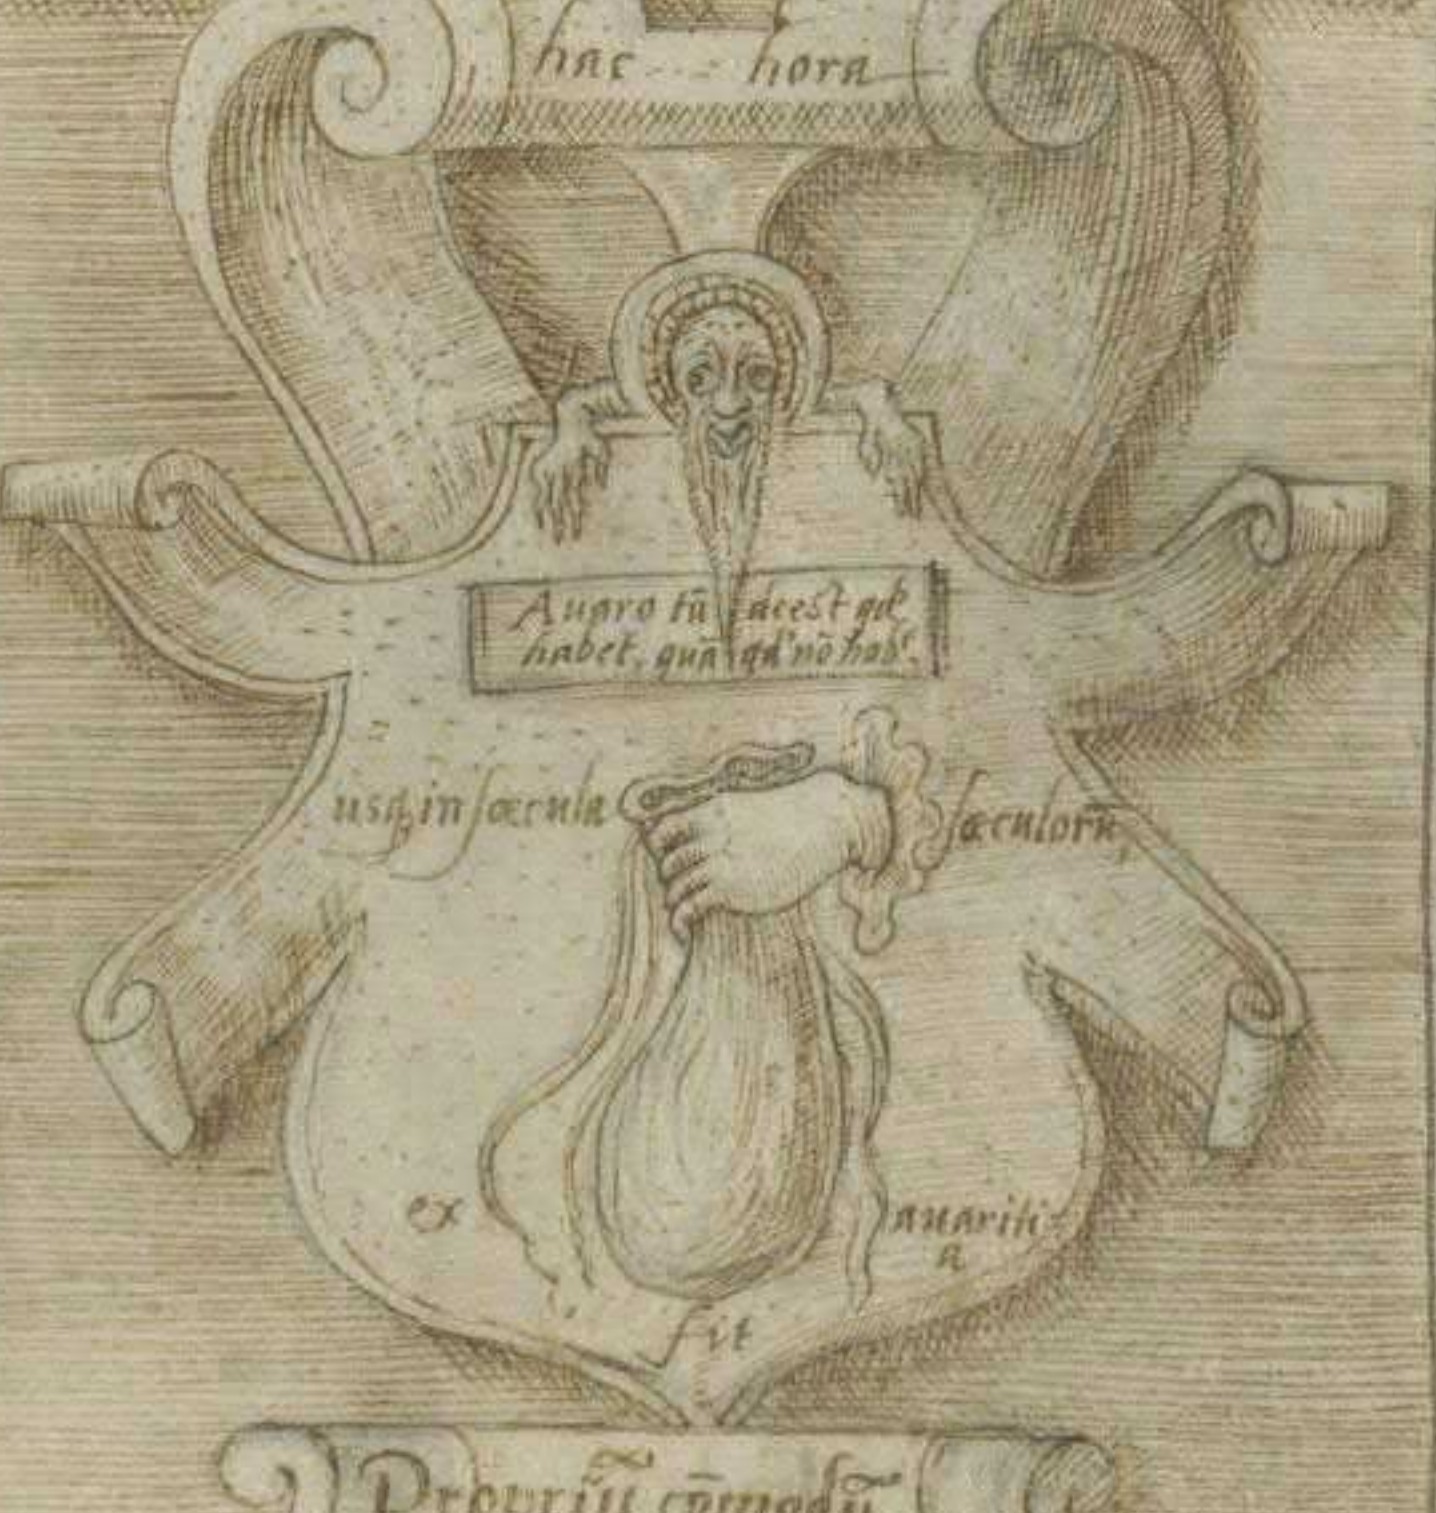 hac hora
Auaro tā deest qđ
habet, quā qđ nō habt.
usq; in sæcula sæculorū
ex auariti-
a
fit
Propriū cōmodū